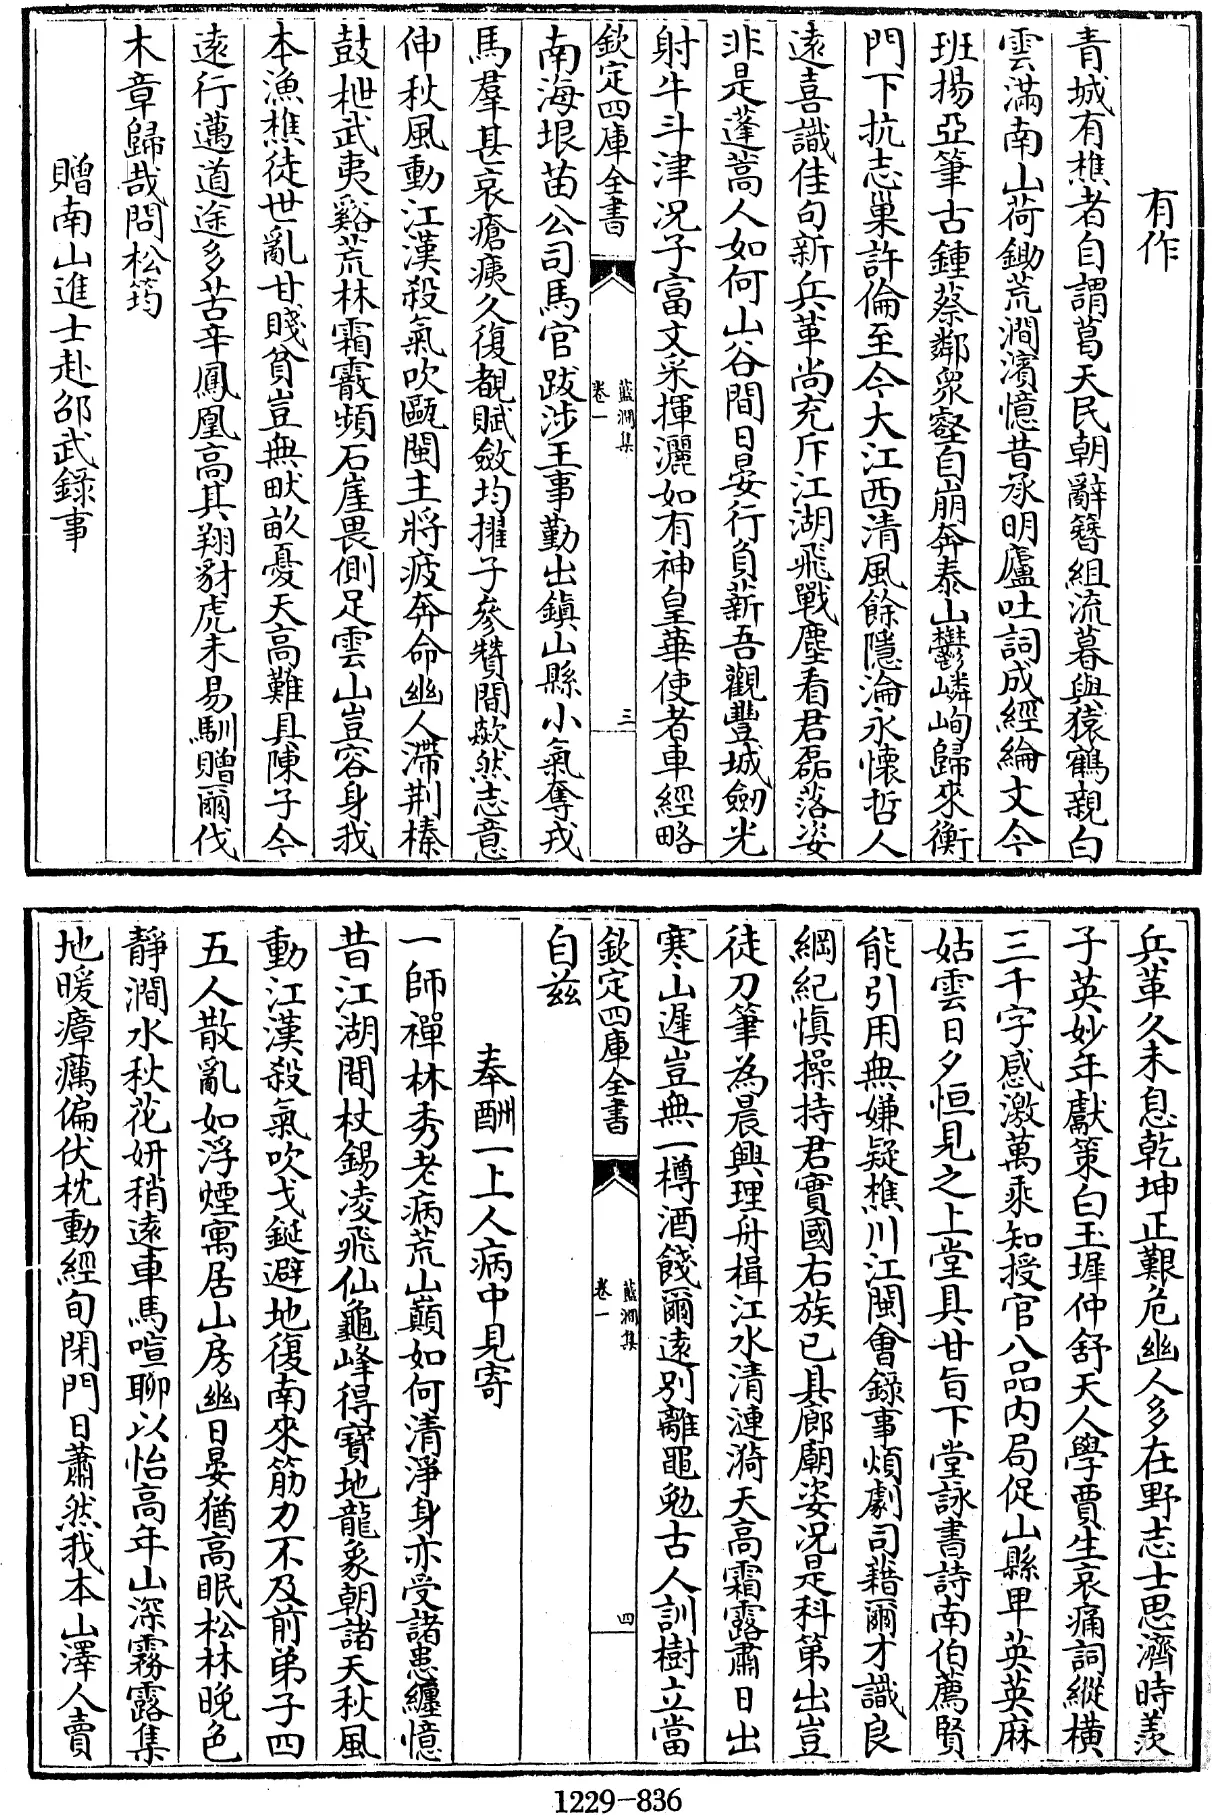 有作
青城有樵者自謂葛天民朝辭簪組流暮與猿鶴親白
雲滿南山荷鋤荒澗濱憶昔承明廬吐詞成經綸文今
班揚亞筆古鍾蔡鄰衆壑自崩奔泰山鬱嶙峋歸來衡
門下抗志巢許倫至今大江西清風餘隱淪永懷哲人
遠喜識佳句新兵革尚充斥江湖飛戰塵看君磊落姿
非是蓬蒿人如何山谷間日晏行負薪吾觀豐城劒光
射牛斗津况子富文采揮灑如有神皇華使者車經略
欽定四庫全書
藍澗集
卷一
三
南海垠苗公司馬官跋涉王事勤出鎮山縣小氣奪戎
馬羣甚哀瘡痍久復覩賦斂均擢子參贊間歘然志意
伸秋風動江漢殺氣吹甌閩主將疲奔命幽人滯荆榛
鼓枻武夷谿荒林霜霰頻石崖畏側足雲山豈容身我
本漁樵徒世亂甘賤貧豈無畎畝憂天高難具陳子今
遠行邁道途多苦辛鳳凰高其翔豺虎未易馴贈爾伐
木章歸哉問松筠
贈南山進士赴邵武錄事
兵革久未息乾坤正艱危幽人多在野志士思濟時羨
子英妙年獻策白玉墀仲舒天人學賈生哀痛詞縱横
三千字感激萬乘知授官八品内局促山縣卑英英麻
姑雲日夕恒見之上堂具甘旨下堂詠書詩南伯薦賢
能引用無嫌疑樵川江閩會錄事煩劇司藉爾才識良
綱紀慎操持君實國右族已具廊廟姿况是科第出豈
徒刀筆為晨興理舟楫江水清漣漪天高霜露肅日出
寒山遲豈無一樽酒餞爾遠别離黽勉古人訓樹立當
欽定四庫全書
藍澗集
卷一
四
自兹
奉酬一上人病中見寄
一師禪林秀老病荒山巔如何清淨身亦受諸患纏憶
昔江湖間杖錫凌飛仙龜峰得寶地龍象朝諸天秋風
動江漢殺氣吹戈鋋避地復南來筋力不及前弟子四
五人散亂如浮煙寓居山房幽日晏猶高眠松林晚色
靜澗水秋花妍稍遠車馬喧聊以怡高年山深霧露集
地暖瘴癘偏伏枕動經旬閉門日蕭然我本山澤人賣
1229-836